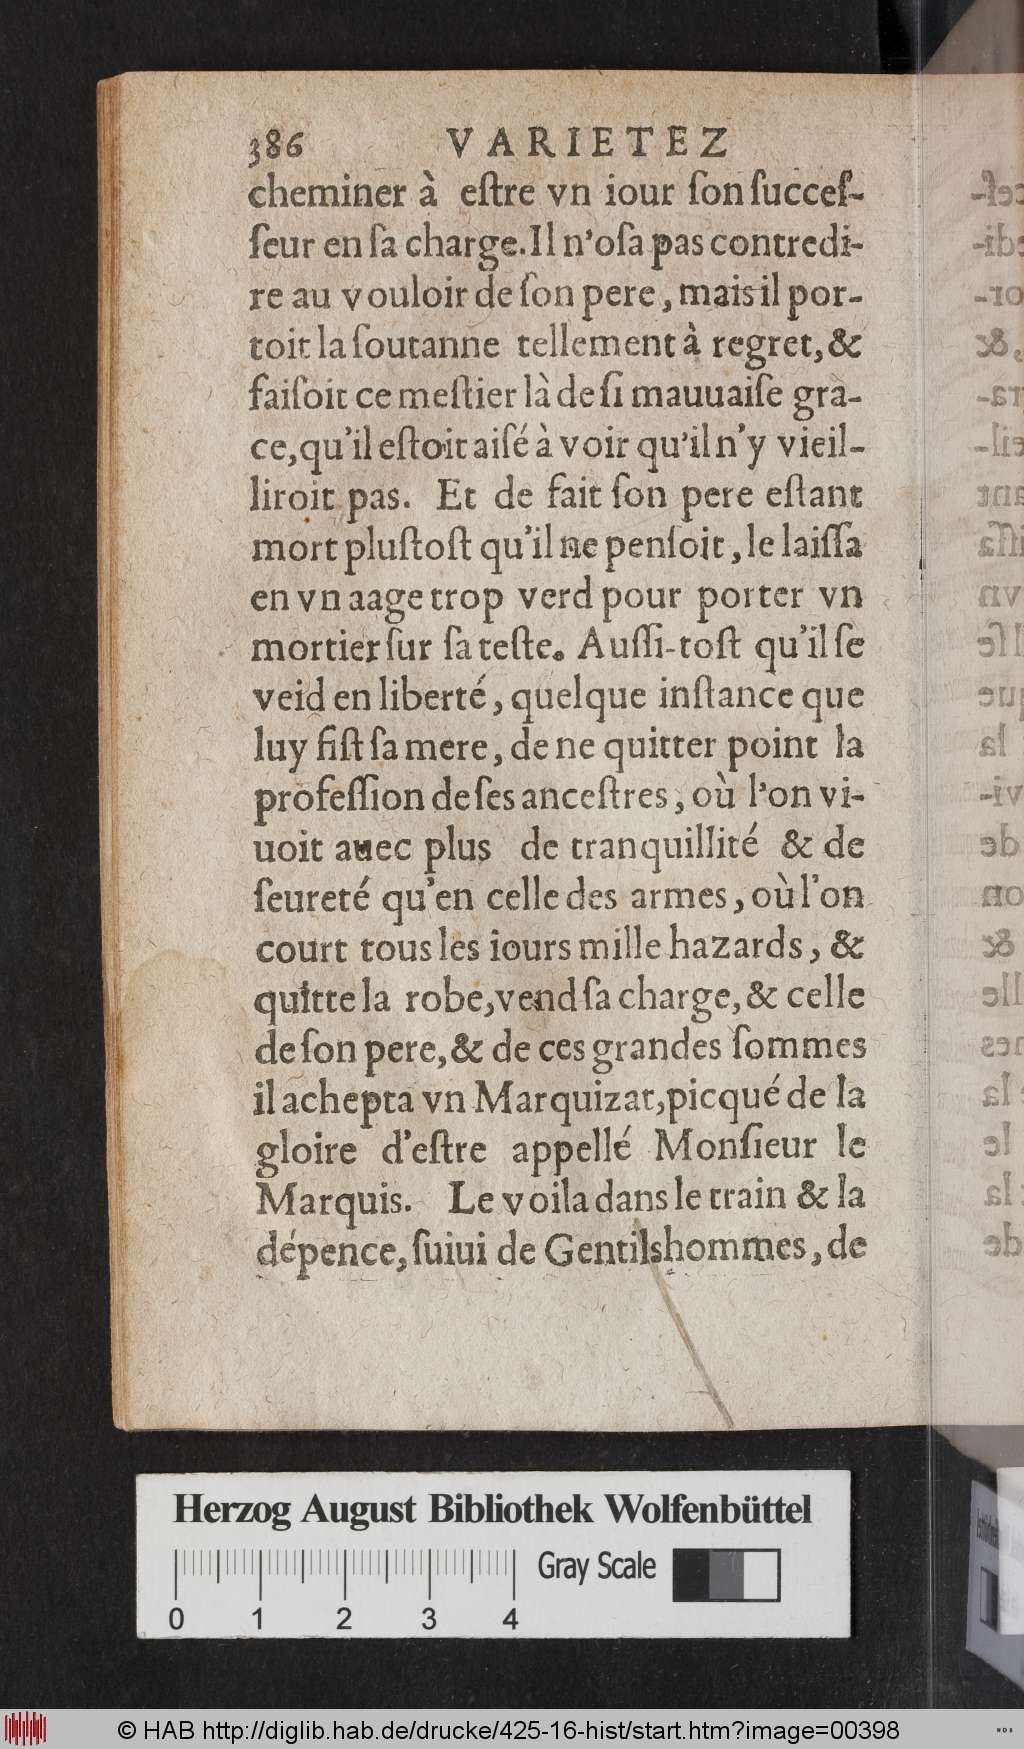 386 VARIETEZ
cheminer à eſtre vn iour ſon ſucceſ-
ſeur en ſa charge. Il n'oſa pas contredi-
re au vouloir de ſon pere, mais il por-
toit la ſoutanne tellement à regret, &
faiſoit ce meſtier là de ſi mauuaiſe gra-
ce, qu'il eſtoit aiſé à voir qu'il n'y vieil-
liroit pas. Et de fait ſon pere eſtant
mort pluſtoſt qu'il ne penſoit, le laiſſa
en vn aage trop verd pour porter vn
mortier ſur ſa teſte. Auſſi-toſt qu'il ſe
veid en liberté, quelque inſtance que
luy fiſt ſa mere, de ne quitter point la
profeſſion de ſes anceſtres, où l'on vi-
uoit auec plus de tranquillité & de
ſeureté qu'en celle des armes, où l'on
court tous les iours mille hazards, &
quitte la robe, vend ſa charge, & celle
de ſon pere, & de ces grandes ſommes
il achepta vn Marquizat, picqué de la
gloire d'eſtre appellé Monſieur le
Marquis. Le voila dans le train & la
dépence, ſuiui de Gentilshommes, de
Herzog August Bibliothek Wolfenbüttel
Gray Scale
0 1 2 3 4
© HAB http://diglib.hab.de/drucke/425-16-hist/start.htm?image=00398